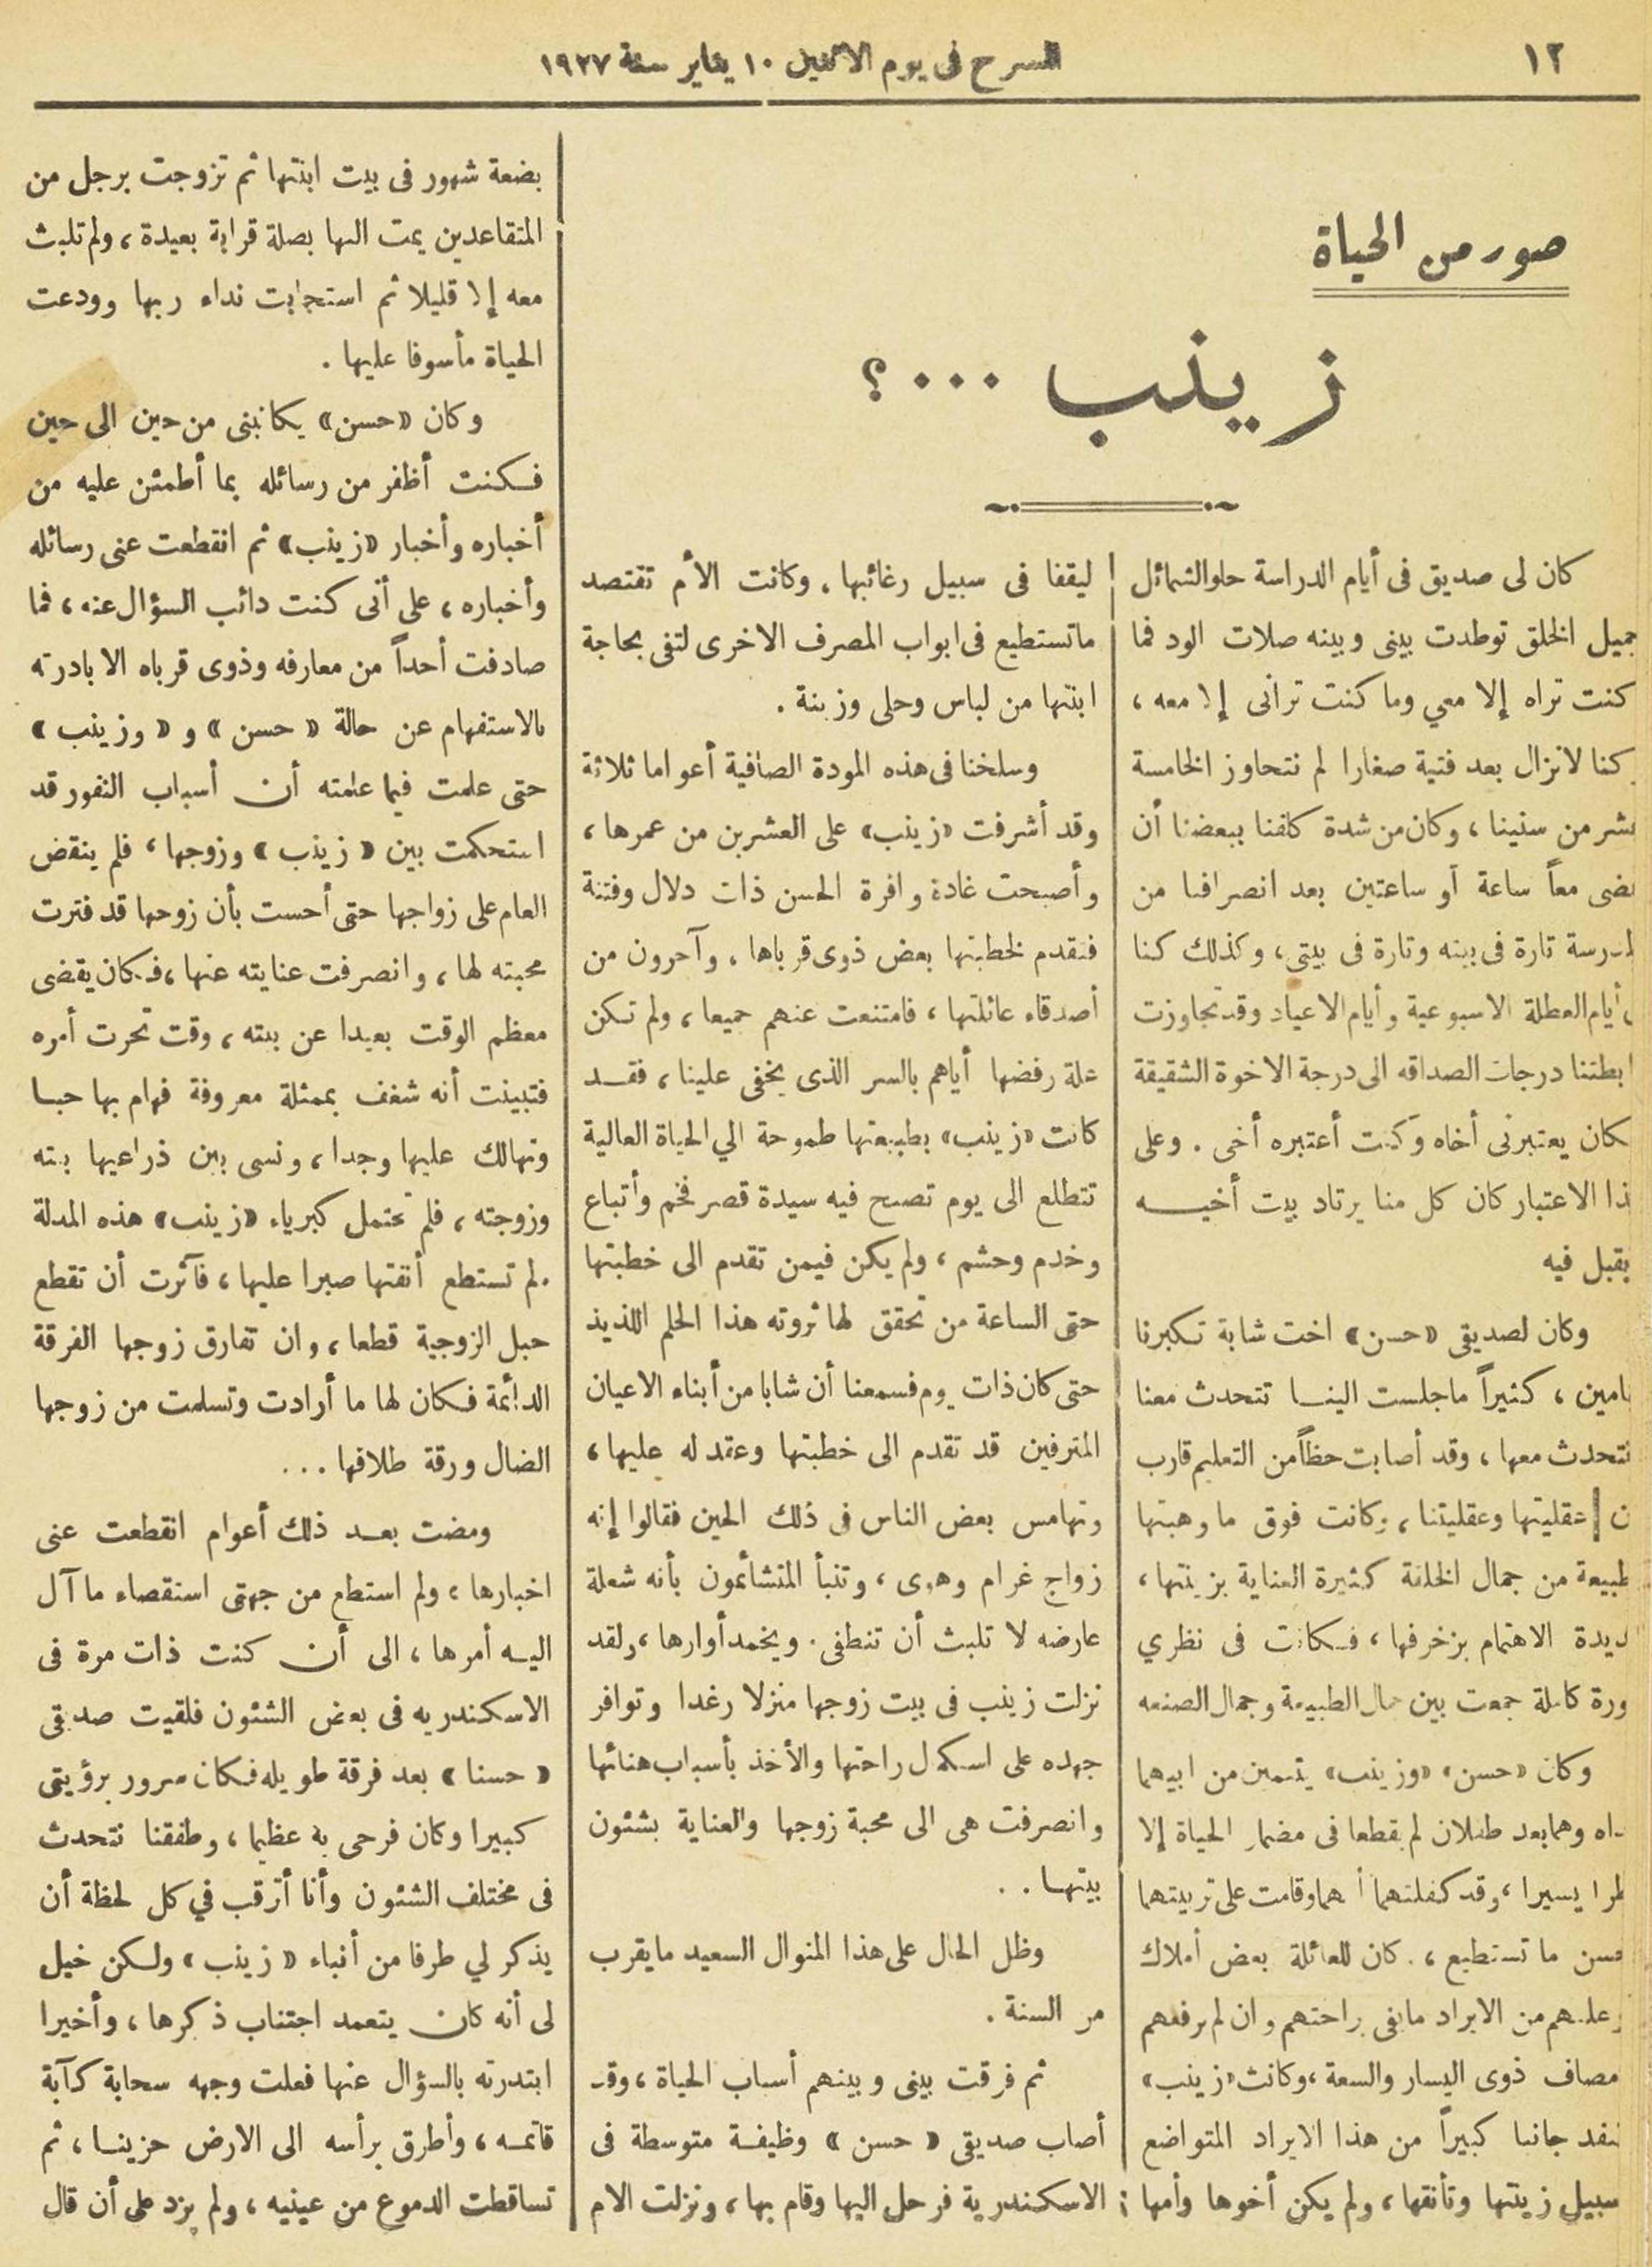 ١٢
المسرح فى يوم الاثنين ١٠ يناير سنة ١٩٢٧
صور من الحياة
زينب ... ؟
كان لى صديق فى أيام الدراسة حلو الشمائل
جميل الخلق توطدت بينى وبينه صلات الود فما
كنت تراه إلا معي وما كنت ترانى إلا معه ،
كنا لا نزال بعد فتية صغارا لم نتجاوز الخامسة
عشر من سنينا ، وكان من شدة كلفنا ببعضنا أن
نضى معاً ساعة أو ساعتين بعد انصرافنا من
المدرسة تارة فى بيته وتارة فى بيتي ، وكذلك كنا
أيام العطلة الاسبوعية وأيام الاعياد وقد تجاوزت
ابطتنا درجات الصداقه الى درجة الاخوة الشقيقة
كان يعتبرنى أخاه وكنت أعتبره أخى . وعلى
هذا الاعتبار كان كل منا يرتاد بيت أخيه
يقبل فيه
وكان لصديقى «حسن» اخت شابة تكبرنا
بامين ، كثيراً ما جلست الينا تتحدث معنا
نتحدث معها ، وقد أصابت حظاً من التعليم قارب
ن عقليتها وعقليتنا ، وكانت فوق ما وهبتها
طبيعة من جمال الخلقة كثيرة العناية بزينتها ،
ديدة الاهتمام بزخرفها ، فكانت فى نظري
ورة كاملة جمعت بين جمال الطبيعة وجمال الصنعه
وكان «حسن» «وزينب» يتيمين من ابيهما
داه وهما بعد طفلان لم يقطعا فى مضمار الحياة إلا
طرا يسيرا ، وقد كفلتهما أمهما وقامت على تربيتهما
حسن ما تستطيع ، كان للعائلة بعض أملاك
ر عليهم من الايراد ما يفى براحتهم وان لم يرفعهم
مصاف ذوى اليسار والسعة ، وكانت «زينب»
تنفد جانبا كبيراً من هذا الايراد المتواضع
سبيل زينتها وتأنقها ، ولم يكن أخوها وأمها
ليقفا فى سبيل رغائبها . وكانت الأم تقتصد
ما تستطيع فى ابواب المصرف الاخرى لتفى بحاجة
ابنتها من لباس وحلى وزينة .
وسلخنا فى هذه المودة الصافية أعواما ثلاثة
وقد أشرفت «زينب» على العشرين من عمرها ،
وأصبحت غادة وافرة الحسن ذات دلال وفتنة
فتقدم لخطبتها بعض ذوى قرباها ، وآخرون من
أصدقاء عائلتها ، فامتنعت عنهم جميعا ، ولم تكن
علة رفضها أياهم بالسر الذى يخفى علينا ، فقد
كانت «زينب» بطبيعتها طموحة الي الحياة العالية
تتطلع الى يوم تصبح فيه سيدة قصر فخم وأتباع
وخدم وحشم ، ولم يكن فيمن تقدم الى خطبتها
حتى الساعة من تحقق لها ثروته هذا الحلم اللذيذ
حتى كان ذات يوم فسمعنا أن شابا من أبناء الاعيان
المترفين قد تقدم الى خطبتها وعقد له عليها ،
وتهامس بعض الناس فى ذلك الحين فقالوا إنه
زواج غرام وهوى ، وتنبأ المتشائمون بأنه شعلة
عارضه لا تلبث أن تنطفى . ويخمد أوارها ، ولقد
نزلت زينب فى بيت زوجها منزلا رغدا وتوافر
جهده على اسكمال راحتها والأخذ بأسباب هنائها
وانصرفت هى الى محبة زوجها والعناية بشئون
بيتها . .
وظل الحال على هذا المنوال السعيد ما يقرب
مر السنة .
ثم فرقت بينى وبينهم أسباب الحياة ، وقد
أصاب صديقى « حسن » وظيفة متوسطة فى
الاسكندرية فرحل اليها وقام بها ، ونزلت الام
بضعة شهور فى بيت ابنتها ثم تزوجت برجل من
المتقاعدين يمت اليها بصلة قرابة بعيدة ، ولم تلبث
معه إلا قليلا ثم استجابت نداء ربها وودعت
الحياة مأسوفا عليها .
وكان «حسن» يكاتبنى من حين الى حين
فكنت أظفر من رسائله بما أطمئن عليه من
أخباره وأخبار «زينب» ثم انقطعت عنى رسائله
وأخباره ، على أنى كنت دائب السؤال عنه ، فما
صادفت أحداً من معارفه وذوى قرباه الا بادرته
بالاستفهام عن حالة « حسن » و « وزينب »
حتى علمت فيما علمته أن أسباب النفور قد
استحكمت بين « زينب » وزوجها ، فلم ينقض
العام على زواجها حتى أحست بأن زوجها قد فترت
محبته لها ، وانصرفت عنايته عنها ، فكان يقضى
معظم الوقت بعيدا عن بيته ، وقت تحرت أمره
فتبينت أنه شغف بممثلة معروفة فهام بها حبا
وتهالك عليها وجدا ، ونسى بين ذراعيها بيته
وزوجته ، فلم تحتمل كبرياء «زينب» هذه المذلة
ولم تستطع أنفتها صبرا عليها ، فآثرت أن تقطع
حبل الزوجية قطعا ، وان تفارق زوجها الفرقة
الدائمة فكان لها ما أرادت وتسلمت من زوجها
الضال ورقة طلاقها ...
ومضت بعد ذلك أعوام انقطعت عنى
اخبارها ، ولم استطع من جهتى استقصاء ما آل
اليه أمرها ، الى أن كنت ذات مرة فى
الاسكندريه فى بعض الشئون فلقيت صديقى
« حسنا » بعد فرقة طويله فكان سرور برؤيتى
كبيرا وكان فرحى به عظيما ، وطفقنا نتحدث
فى مختلف الشئون وأنا أترقب في كل لحظة أن
يذكر لي طرفا من أنباء « زينب » ولكن خيل
لى أنه كان يتعمد اجتناب ذكرها ، وأخيرا
ابتدرته بالسؤال عنها فعلت وجهه سحابة كآبة
قاتمه ، وأطرق برأسه الى الارض حزينا ، ثم
تساقطت الدموع من عينيه ، ولم يزد على أن قال